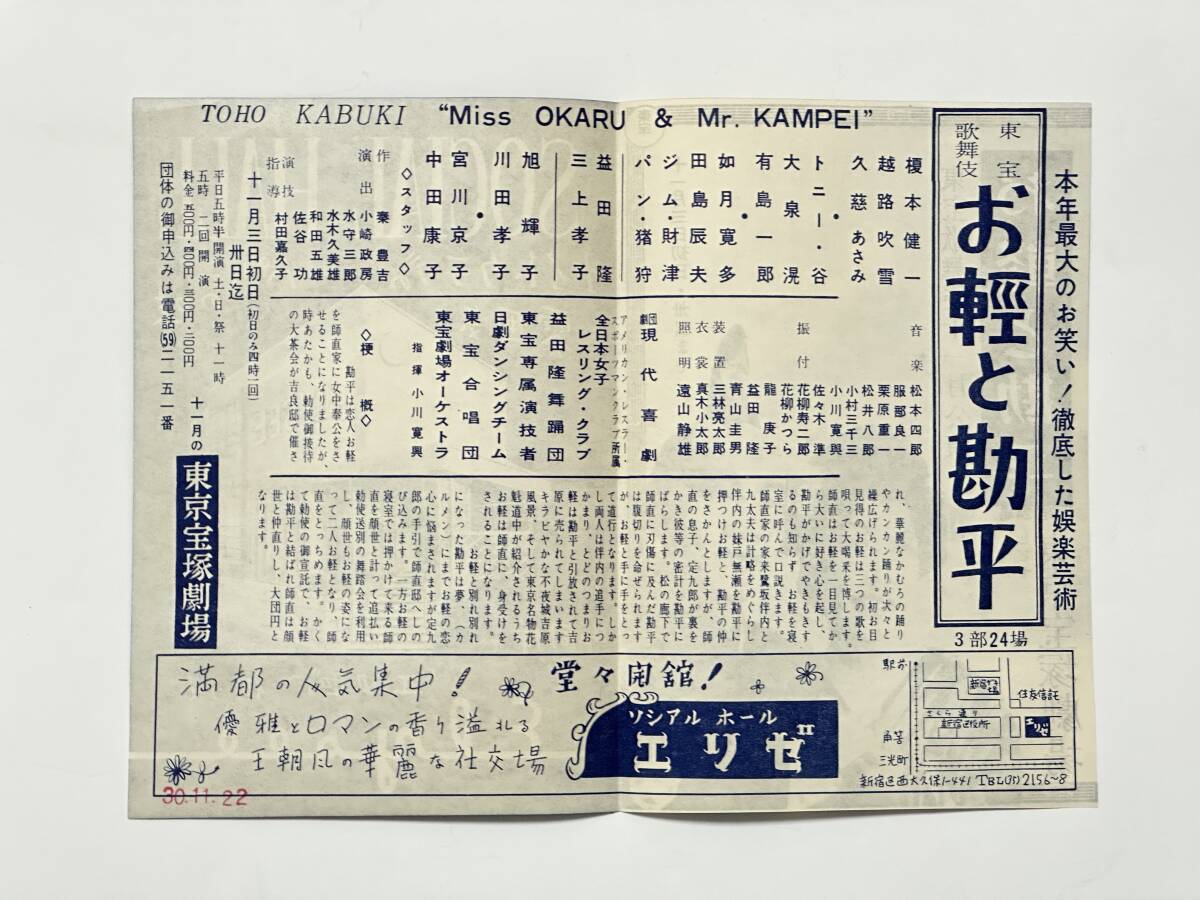 TOHO KABUKI “Miss OKARU & Mr. KAMPEI”
本年最大のお笑い！徹底した娯楽芸術
東宝歌舞伎
お輕と勘平
3部24場
榎本健一
越路吹雪
久慈あさみ
トニー・谷
大泉滉
有島一郎
如月寛多
田島辰夫
ジム・財津
パン・猪狩
益田隆
三上孝子
旭輝子
川田孝子
宮川京子
中田康子
◇スタッフ◇
作 秦豊吉
演出 小崎政房
水守三郎
水木久美雄
演技指導 和田五雄
佐谷功
村田嘉久子
十一月三日初日(初日のみ四時一回)
卅日迄
平日五時半開演 土・日・祭 十一時
五時 二回開演
料金 五〇〇円・四〇〇円・三〇〇円・二〇〇円
団体の御申込みは電話(59)二一五一番
音楽 松本四郎
服部良一
栗原重一
松井八郎
小村三千三
小川寛興
佐々木準
振付 花柳寿二郎
花柳かつら
龍庚子
益田隆
青山圭男
装置 三林亮太郎
衣裳 真木小太郎
照明 遠山静雄
劇団現代喜劇
アメリカン・レスラー・
スポーツマンクラブ所属
全日本女子
レスリング・クラブ
益田隆舞踊団
東宝専属演技者
日劇ダンシングチーム
東宝合唱団
東宝劇場オーケストラ
指揮 小川寛興
◇梗概◇
勘平は恋人お軽
を師直家に女中奉公をさ
せることになりましたが、
時あたかも、勅使御接待
の大茶会が吉良邸で催さ
れ、華麗なかむろの踊り
やカンカン踊りが次々と
繰広げられます。初お目
見得のお軽は三つの歌を
唄って大喝采を博します。
師直はお軽を一目見てか
ら大いに好き心を起し、
勘平がかげでやきもきす
るのも知らず、お軽を寝
室に呼んで口説きます。
師直家の家来鷺坂伴内と
九太夫は計略をめぐらし
伴内の妹戸無瀬を勘平に
押つけお軽と、勘平の仲
をさかんとしますが、師
直の息子、定九郎が裏を
かき彼等の密計を勘平に
ばらします。松の廊下で
師直に刃傷に及んだ勘平
は腹切りを命ぜられます
が、お軽と手に手をとっ
て道行となります。しか
し両人は伴内の追手につ
かまり、とどのつまりお
軽は勘平と引放されて吉
原に売られて行きます。
キラビヤかな不夜城吉原
風景、そして東京名物花
魁道中が紹介されるうち
お軽は師直に、身受けを
されることになります。
お軽と別れ別れ
になった勘平は夢、(カ
ルメン)にまでお軽の恋
心に悩まされますが定九
郎の手引で師直邸へしの
び込みます。一方お軽の
寝室では押かけて来る師
直を顔世と計って追払い
勅使送別の舞踏会を利用
し、顔世もお軽の姿にな
って二人お軽となり、師
直をとっちめます。かく
て勅使の御宣託で、お軽
は勘平と結ばれ師直は顔
世と仲直りし、大団円と
なります。
十一月の
東京宝塚劇場
満都の人気集中！
優雅とロマンの香り溢れる
王朝風の華麗な社交場
堂々開館！
ソシアル ホール
エリゼ
駅前
住友信託
さくら通り
新宿区役所
エリゼ
角筈
三光町
新宿区西大久保1-441 TEL(37)2156~8
30.11.22